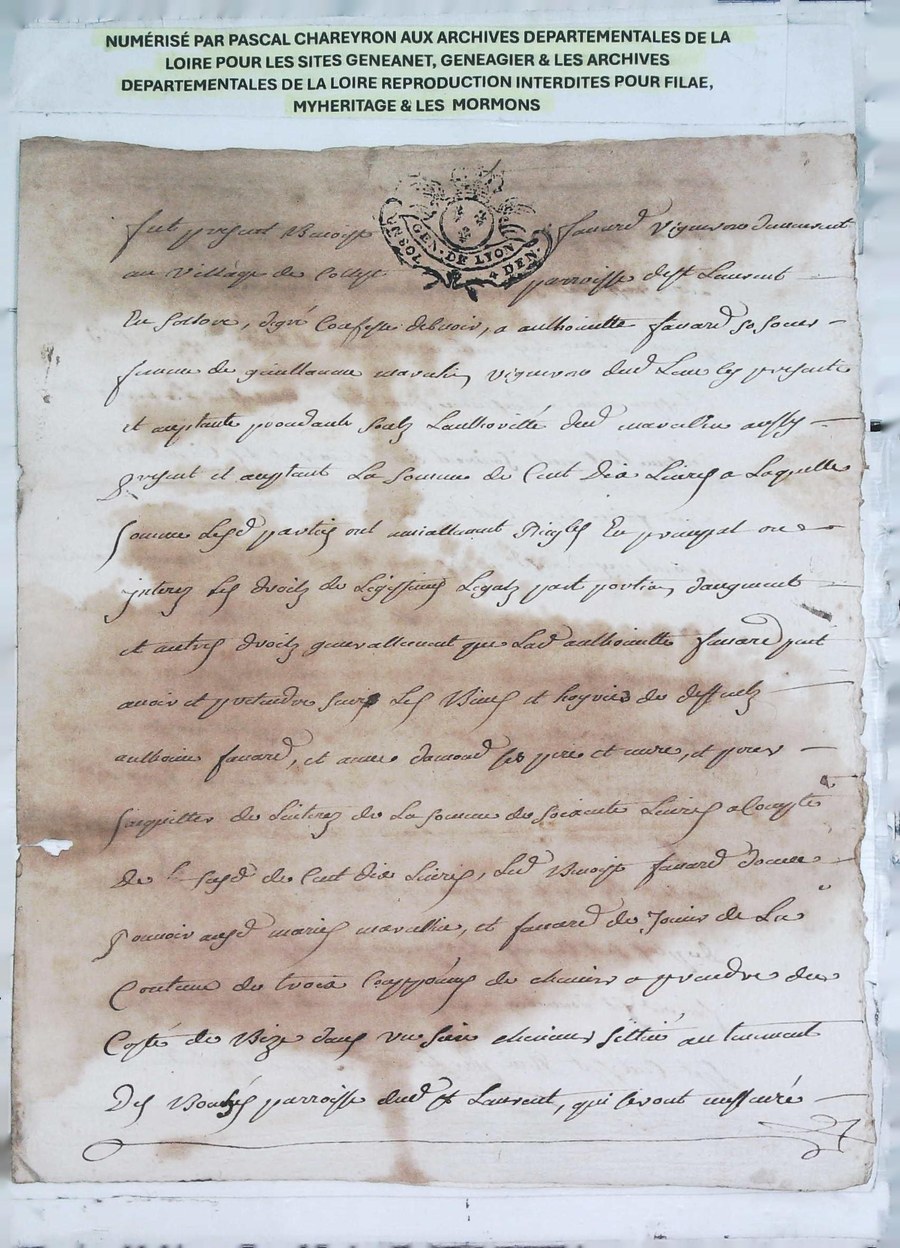 NUMÉRISÉ PAR PASCAL CHAREYRON AUX ARCHIVES DEPARTEMENTALES DE LA
LOIRE POUR LES SITES GENEANET, GENEAGIER & LES ARCHIVES
DEPARTEMENTALES DE LA LOIRE REPRODUCTION INTERDITES POUR FILAE,
MYHERITAGE & LES MORMONS
GEN. DE LYON
UN SOL 4 DEN.
fut present Benoist fauard Vigneron demeurant
au Village de parroisse de st Laurent
En debuoir, a anthoinette fauard sa soeur
femme de guillaume Vigneron dud Lieu les presente
et aceptante soubz Lauthorité dud aussy
present et aceptant La somme de Cent dix Liures a Laquelle
somme Lesd parties ont amiablement Reigles En principal ou
interez Les droits de Legitime Legatz part portion daugment
et autres droitz generallement que Lad anthoinette fauard peut
auoir et pretendre sur Les Biens et hoyries de deffuctz
anthoine fauard, et anne ses pere et mere, et pour
saquitter de Linterez de La somme de soixante Liures a Compte
de Cent dix Liures, Led Benoist fauard donne
pouuoir ausd mariés et fauard de Jouir de La
Contenue de trois de a prendre du
Costé de Bize dans un sien sittué au tenement
Des parroisse dud st Laurent, qui seront mesuré